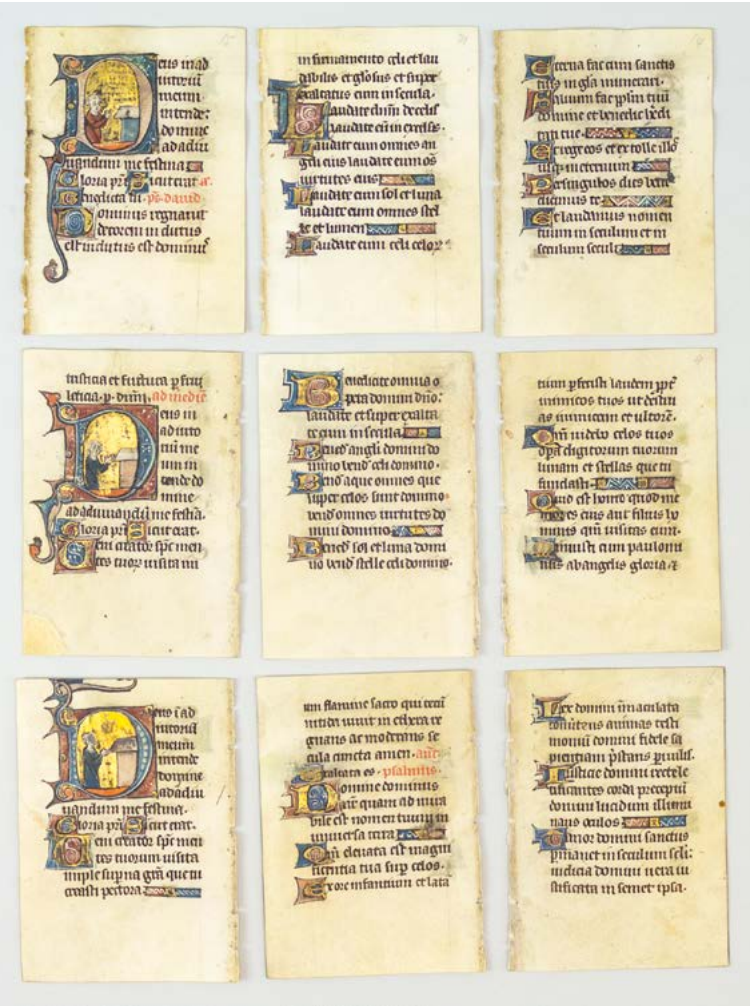 eus in ad
iutoriū
meum
intende:
domine
ad adiu
uandum me festina
Gloria pr̄i Sicut erat
in. ps. dauid
Dominus regnauit
decorem indutus
est indutus est dominus
in firmamento celi et lau
dabilis et gl̄osus et super
exaltatus eum in secula.
Laudate dn̄m de celis
laudate eū in excelsis.
Laudate eum omnes an
geli eius laudate eum oēs
uirtutes eius
Laudate eum sol et luna
laudate eum omnes stel
le et lumen
Laudate eum celi celor
Eterna fac cum sanctis
tuis in gl̄a munerari.
Saluum fac pplm tuū
domine et benedic hedi
tati tue.
Et rege eos et extolle illos
usqʒ in eternum
Per singulos dies bene
dicimus te
Et laudamus nomen
tuum in seculum et in
seculum seculi
leticia. ad
eus in
ad iuto
riū me
um in
tende do
mine
ad adiuuandū me festina.
Gloria pr̄i Sicut erat.
Veni creator sp̄c men
tes tuorʒ uisita
Benedicite omnia o
pera domini dn̄o.
laudate et super exalta
te eum in secula.
Bened̄ angli domini do
mino bened̄ celi domino.
Bened̄ aque omnes que
super celos sunt domino
bened̄ omnes uirtutes do
mini domino
Bened̄ sol et luna domi
no bened̄ stelle celi domino.
tuum pfecisti laudem ppt̄
inimicos tuos ut destru
as inimicum et ultorē.
Qm̄ uidebo celos tuos
opa digitorum tuorum
lunam et stellas que tu
fundasti
Quid est homo quod me
mores eius aut filius ho
minis qm̄ uisitas eum.
Minuisti eum paulomi
nus ab angelis gloria. ⁊
eus ī ad
iutoriū
meum
intende
domine
ad adiu
uandum me festina.
Gloria pr̄i Sicut erat.
Veni creator sp̄c men
tes tuorum uisita
imple supna gr̄a que tu
creasti pectora
um flamine sacro qui tecū
uiuit in ethera re
gnans ac moderans se
cula cuncta amen. ant̄
Exaltata es. psalmus.
Domine dominus
nr̄ quam ad mira
bile est nomen tuum in
uniuersa terra
Qm̄ eleuata est magni
ficentia tua sup celos.
Ex ore infantium et lacta
Lex domini īmaculata
conuertens animas testi
moniū domini fidele sa
pientiam p̄stans puulis.
Iusticie domini recte le
tificantes corda preceptū
domini lucidum illumi
nans oculos
Timor domini sanctus
pmanet in seculum seli:
iudicia domini uera iu
stificata in semet ipsa.